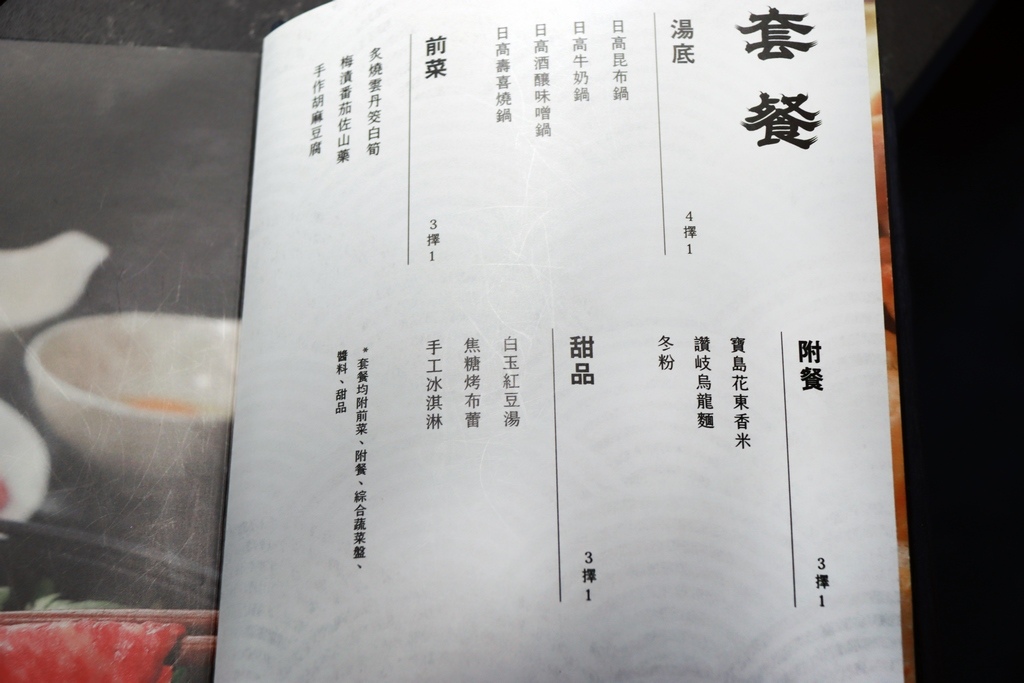 套餐
湯底
4擇1
日高昆布鍋
日高牛奶鍋
日高酒釀味噌鍋
日高壽喜燒鍋
前菜
3擇1
炙燒雲丹筊白筍
梅漬番茄佐山藥
手作胡麻豆腐
附餐
3擇1
寶島花東香米
讚岐烏龍麵
冬粉
甜品
3擇1
白玉紅豆湯
焦糖烤布蕾
手工冰淇淋
*套餐均附前菜、附餐、綜合蔬菜盤、
醬料、甜品